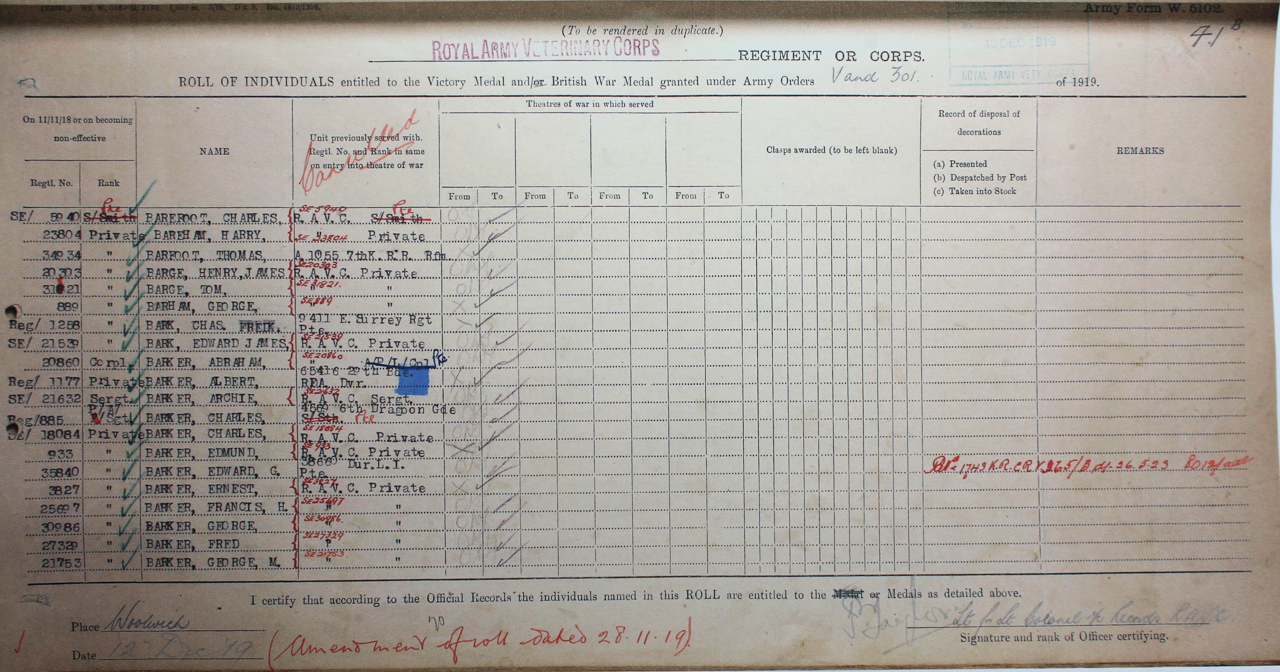 Army Form W. 5102.
41 B
(To be rendered in duplicate.)
ROYAL ARMY VETERINARY CORPS REGIMENT OR CORPS.
DEC 1919
ROYAL ARMY VETY. CORPS
ROLL OF INDIVIDUALS entitled to the Victory Medal and/or British War Medal granted under Army Orders V and 301. of 1919.
On 11/11/18 or on becoming non-effective
Regtl. No. Rank
NAME
Unit previously served with. Regtl. No. and Rank in same on entry into theatre of war
Cancelled
Theatres of war in which served
From To From To From To From To
Clasps awarded (to be left blank)
Record of disposal of decorations
(a) Presented
(b) Despatched by Post
(c) Taken into Stock
REMARKS
SE/ 5940 S/Smith Pte BAREFOOT, CHARLES, SE5940 R.A.V.C. S/Smith Pte
23804 Private BAREHAM, HARRY, SE 23804 " Private
34934 " BARFOOT, THOMAS, A.1055 7th K.R.R. Rfm
20303 " BARGE, HENRY, JAMES SE20303 R.A.V.C. Private
31821 " BARGE, TOM, SE31821. " "
889 " BARHAM, GEORGE, SE889 " "
Reg/ 1258 " BARK, CHAS. FREDK. 9411 E.Surrey Rgt Pte.
SE/ 21539 " BARK, EDWARD JAMES, SE21539 R.A.V.C. Private
20860 Corpl. BARKER, ABRAHAM, SE20860 " A/P/L/Cpl Pte
Reg/ 1177 Private BARKER, ALBERT, 65416 29th Bde. RFA. Dvr.
SE/ 21632 Sergt. BARKER, ARCHIE, R.A.V.C. Sergt.
Reg/885 P/A/ Sgt BARKER, CHARLES, 4569 6th Dragoon Gds S/Sth. Pte
SE/ 18084 Private BARKER, CHARLES, SE18084 R.A.V.C. Private
933 " BARKER, EDMUND, SE933 R.A.V.C. Private
35840 " BARKER, EDWARD, G. Dur.L.I. Pte.
3827 " BARKER, ERNEST, SE3827 R.A.V.C. Private
25697 " BARKER, FRANCIS, H. SE25697 " "
30986 " BARKER, GEORGE, SE30986 " "
27329 " BARKER, FRED SE27329 " "
21753 " BARKER, GEORGE, M. SE21753 " "
I certify that according to the Official Records the individuals named in this ROLL are entitled to the Medal or Medals as detailed above.
Place Woolwich
Date 12 Dec '19
(Amendment to of roll dated 28.11.19)
Signature and rank of Officer certifying.